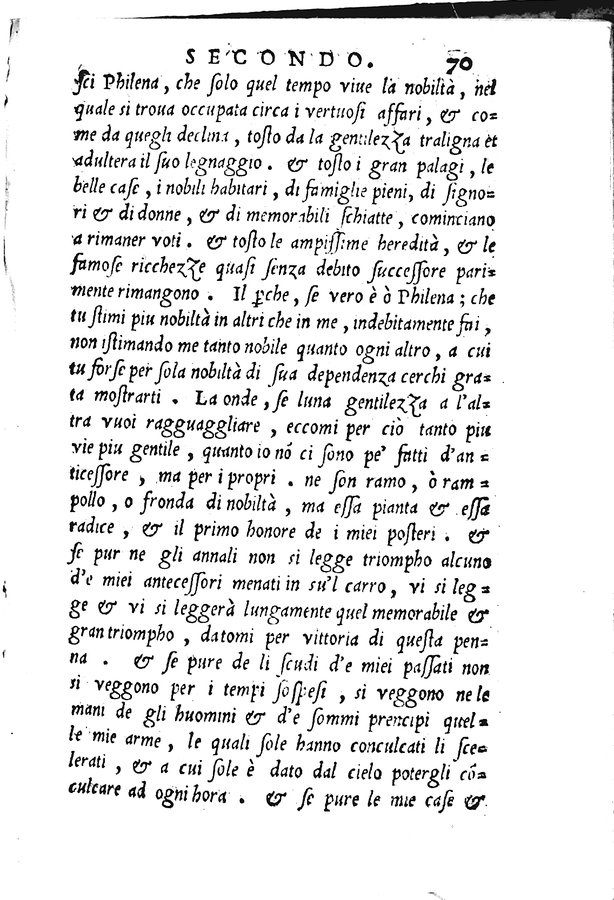 SECONDO. 70
ſci Philena, che ſolo quel tempo viue la nobiltà, nel
quale si troua occupata circa i vertuoſi affari, & co=
me da quegli declina, toſto da la gentilezza traligna et
adultera il ſuo legnaggio. & toſto i gran palagi, le
belle caſe, i nobili habitari, di famiglie pieni, di ſigno=
ri & di donne, & di memorabili ſchiatte, cominciano
a rimaner voti. & toſto le ampiſſime heredità, & le
famoſe ricchezze quaſi ſenza debito ſucceſſore pari=
mente rimangono. Il ꝑche, ſe vero è ò Philena; che
tu ſtimi piu nobiltà in altri che in me, indebitamente fai,
non iſtimando me tanto nobile quanto ogni altro, a cui
tu forſe per ſola nobiltà di ſua dependenza cerchi gra=
ta moſtrarti. La onde, ſe luna gentilezza a l'al=
tra vuoi ragguagliare, eccomi per ciò tanto piu
vie piu gentile, quanto io nó ci ſono pe' fatti d'an=
ticeſſore, ma per i propri. ne ſon ramo, ò ram=
pollo, o fronda di nobiltà, ma eſſa pianta & eſſa
radice, & il primo honore de i miei poſteri. &
ſe pur ne gli annali non si legge triompho alcuno
d'e miei anteceſſori menati in su'l carro, vi si leg=
ge & vi si leggerà lungamente quel memorabile &
gran triompho, datomi per vittoria di queſta pen=
na. & ſe pure de li ſcudi d'e miei paſſati non
si veggono per i tempi ſoſpeſi, si veggono ne le
mani de gli huomini & d'e ſommi prencipi quel=
le mie arme, le quali ſole hanno conculcati li ſce=
lerati, & a cui ſole è dato dal cielo potergli cõ=
culcare ad ogni hora. & ſe pure le mie caſe &